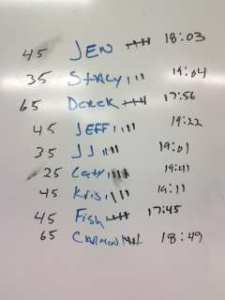 45 JEN 18:03
35 STACY 19:04
65 Derek 17:56
45 JEFF 19:22
35 JJ 19:01
25 19:41
45 Kris 19:11
45 Fish 17:45
65 18:49